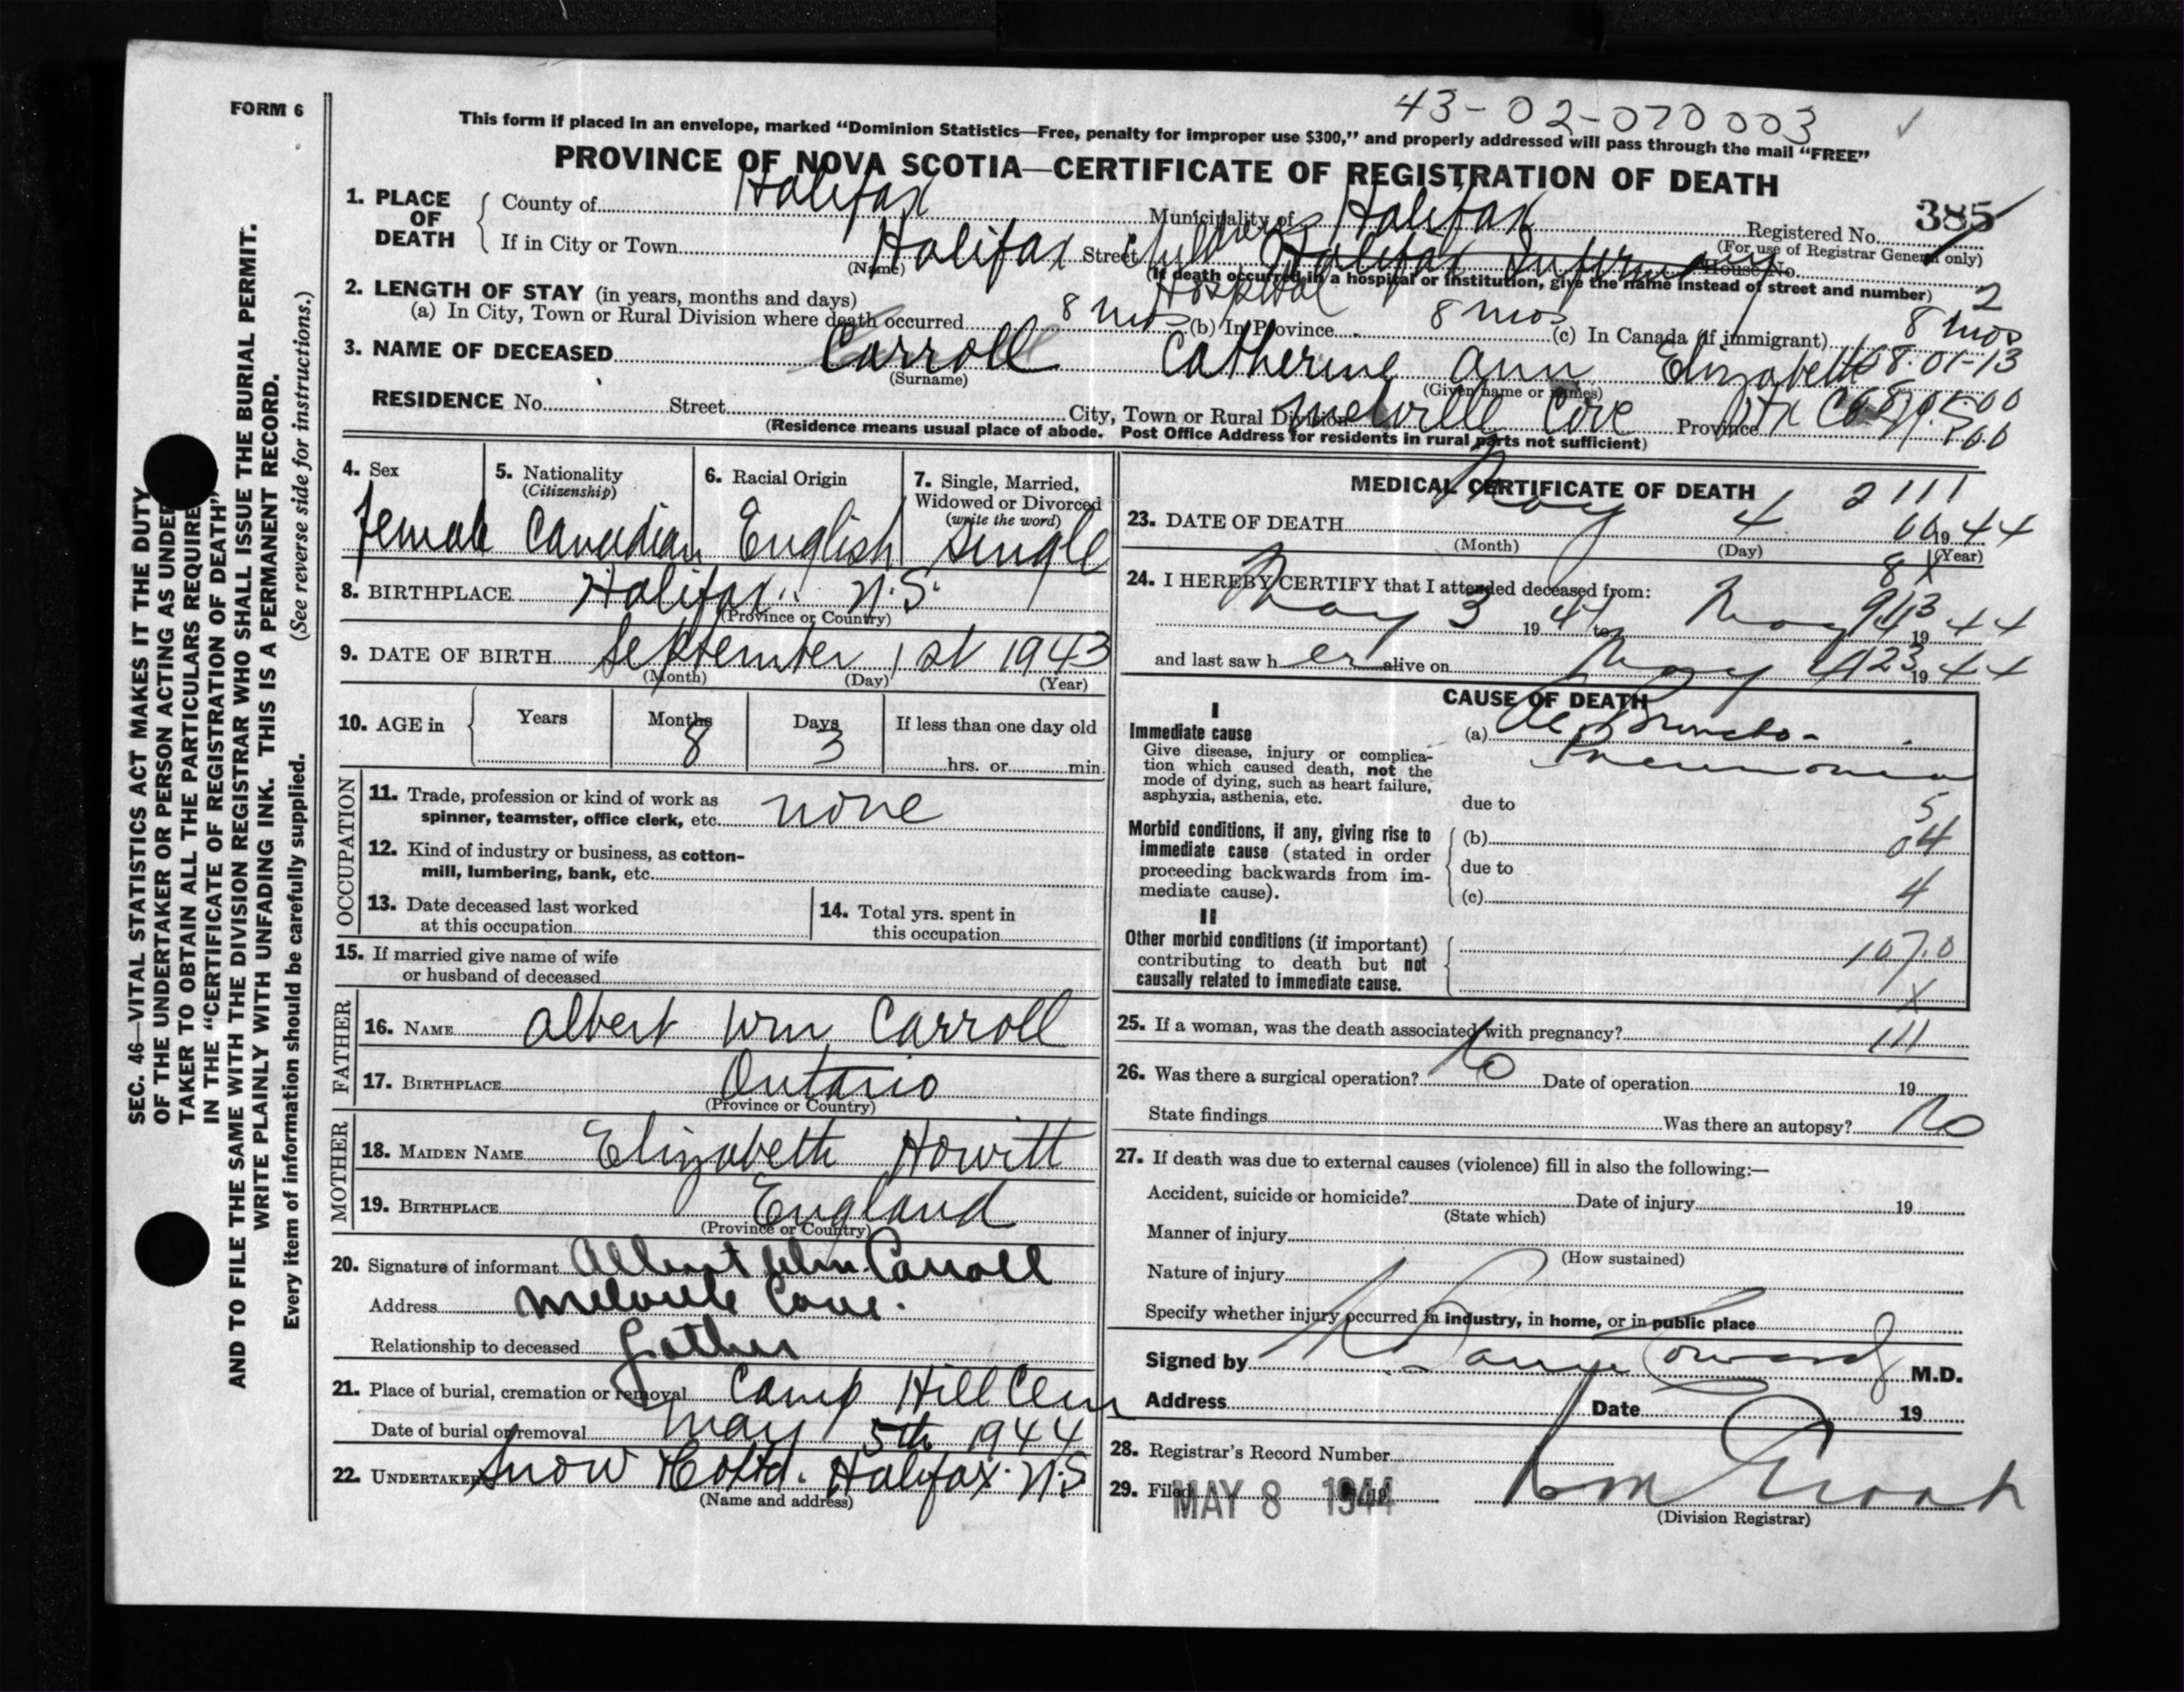 43-02-070003
FORM 6
This form if placed in an envelope, marked "Dominion Statistics—Free, penalty for improper use $300," and properly addressed will pass through the mail "FREE"
PROVINCE OF NOVA SCOTIA—CERTIFICATE OF REGISTRATION OF DEATH
1. PLACE OF DEATH
County of Halifax Municipality of Halifax Registered No. 385
(For use of Registrar General only)
If in City or Town Halifax Street Childrens Halifax Infirmary House No.
(Name)
(If death occurred in a hospital or institution, give the name instead of street and number) 2
Hospital
2. LENGTH OF STAY (in years, months and days)
(a) In City, Town or Rural Division where death occurred 8 mos (b) In Province 8 mos (c) In Canada (if immigrant) 8 mos
3. NAME OF DECEASED Carroll Catherine Ann Elizabeth 8.01-13
(Surname) (Given name or names)
RESIDENCE No. Street City, Town or Rural Division Melville Cove Province Hfx Co N.S.
(Residence means usual place of abode. Post Office Address for residents in rural parts not sufficient)
4. Sex
Female
5. Nationality
(Citizenship)
Canadian
6. Racial Origin
English
7. Single, Married, Widowed or Divorced
(write the word)
Single
8. BIRTHPLACE Halifax N.S.
(Province or Country)
9. DATE OF BIRTH September 1st 1943
(Month) (Day) (Year)
10. AGE in Years Months 8 Days 3 If less than one day old
hrs. or min.
OCCUPATION
11. Trade, profession or kind of work as
spinner, teamster, office clerk, etc. none
12. Kind of industry or business, as cotton-
mill, lumbering, bank, etc.
13. Date deceased last worked
at this occupation
14. Total yrs. spent in
this occupation
15. If married give name of wife
or husband of deceased
FATHER
16. NAME Albert Wm Carroll
17. BIRTHPLACE Ontario
(Province or Country)
MOTHER
18. MAIDEN NAME Elizabeth Howitt
19. BIRTHPLACE England
(Province or Country)
20. Signature of informant Albert Wm. Carroll
Address Melville Cove.
Relationship to deceased Father
21. Place of burial, cremation or removal Camp Hill Cem
Date of burial or removal May 5th 1944
22. UNDERTAKER Snow & Co Ltd. Halifax N.S
(Name and address)
MEDICAL CERTIFICATE OF DEATH 2 111
23. DATE OF DEATH May 4 1944
(Month) (Day) (Year)
24. I HEREBY CERTIFY that I attended deceased from:
May 3 19 44 to May 4 19 44
and last saw h er alive on May 4 19 44
CAUSE OF DEATH
I
Immediate cause
Give disease, injury or complica-
tion which caused death, not the
mode of dying, such as heart failure,
asphyxia, asthenia, etc.
(a) Ac Broncho-
Pneumonia
due to 5
Morbid conditions, if any, giving rise to
immediate cause (stated in order
proceeding backwards from im-
mediate cause).
(b) 04
due to
(c) 4
II
Other morbid conditions (if important)
contributing to death but not
causally related to immediate cause.
107.0
X
25. If a woman, was the death associated with pregnancy? 111
26. Was there a surgical operation? No Date of operation 19
State findings Was there an autopsy? No
27. If death was due to external causes (violence) fill in also the following:—
Accident, suicide or homicide? Date of injury 19
(State which)
Manner of injury
(How sustained)
Nature of injury
Specify whether injury occurred in industry, in home, or in public place
Signed by M.D.
Address Date 19
28. Registrar's Record Number
29. Filed MAY 8 1944
(Division Registrar)
SEC. 46—VITAL STATISTICS ACT MAKES IT THE DUTY
OF THE UNDERTAKER OR PERSON ACTING AS UNDER
TAKER TO OBTAIN ALL THE PARTICULARS REQUIRE
IN THE "CERTIFICATE OF REGISTRATION OF DEATH"
AND TO FILE THE SAME WITH THE DIVISION REGISTRAR WHO SHALL ISSUE THE BURIAL PERMIT.
WRITE PLAINLY WITH UNFADING INK. THIS IS A PERMANENT RECORD.
Every item of information should be carefully supplied. (See reverse side for instructions.)